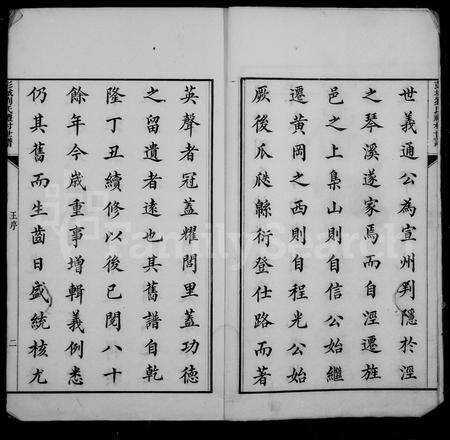 世義通公為宣州判隱於涇
之琴溪遂家焉而自涇遷旌
邑之上梟山則自信公始繼
遷黃岡之西則自程光公始
厥後瓜瓞緜衍登仕路而著
英聲者冠蓋耀閭里蓋功德
之留遺者遠也其舊譜自乾
隆丁丑續修以後已閱八十
餘年今歲重事增輯義例悉
仍其舊而生齒日盛統核尤
王序
二
FamilySearch